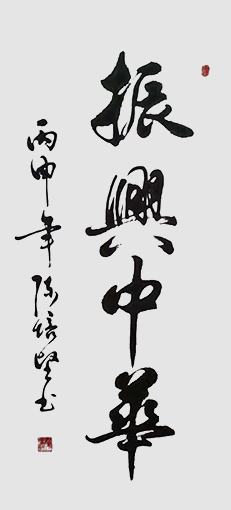 振興中華
丙申年陈培坚书